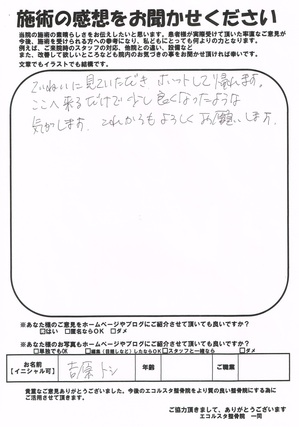 施術の感想をお聞かせください
当院の施術の素晴らしさをお伝えしたいと思います。患者様が実際受けて頂いた率直なご意見が
今後、施術を受けられる方への参考になり、私どもにとっても何よりの力となります。
例えば、ご来院時のスタッフの対応、他院との違い、設備など
また、改善して欲しいところなども院内のお気づきの事をお聞かせ頂ければ幸いです。
文章でもイラストでも結構です。
ていねいに見ていただき ホットして帰れます。
ここへ来るだけで少し良くなったような
気がします。これからもよろしくお願いします。
※あなた様のご意見をホームページやブログにご紹介させて頂いても良いですか?
□はい □匿名ならOK □ダメ
※あなた様のお写真もホームページやブログにご紹介させて頂いても良いですか?
□単独でもOK □編集(目隠しなど)したならOK □スタッフと一緒なら □ダメ
お名前
【イニシャル可】
吉原 トシ
年齢
ご職業
貴重なご意見ありがとうございました。今後のエコルスタ整骨院をより良い整骨院にする為に
ご活用させて頂きます。
ご協力頂きまして、ありがとうございます
エコルスタ整骨院 一同